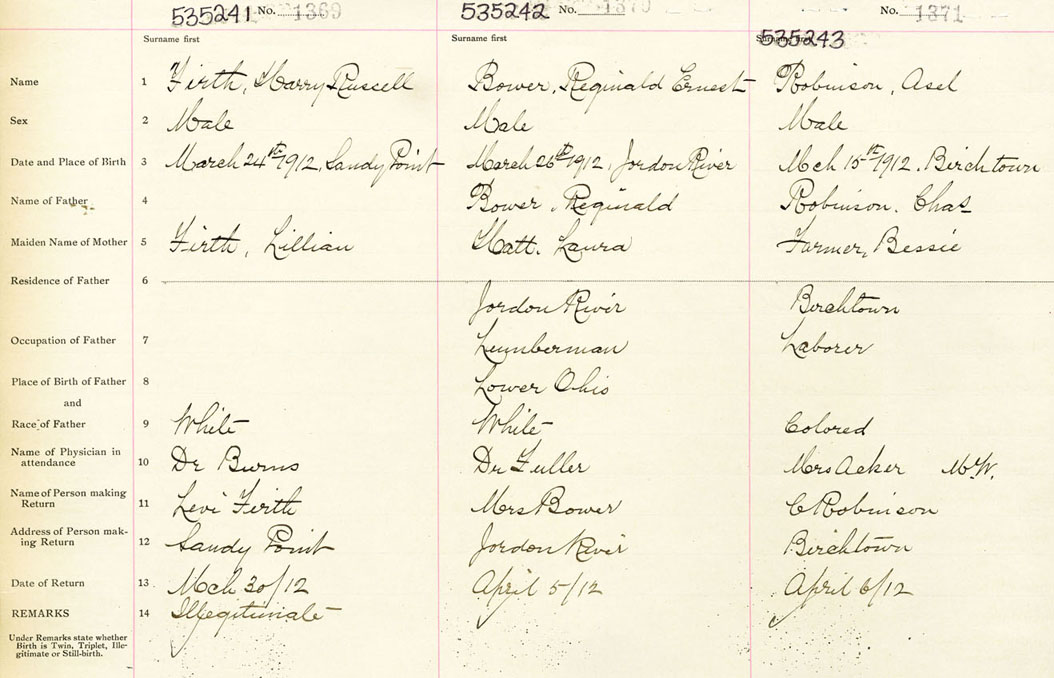 535241 No. 1369 535242 No. No. 1371
Surname first Surname first Surname first 535243
Name 1 Firth, Harry Russell Bower, Reginald Ernest Robinson, Asel
Sex 2 Male Male Male
Date and Place of Birth 3 March 24th 1912, Sandy Point March 26th 1912, Jordon River Mch 15th 1912, Birchtown
Name of Father 4 Bower, Reginald Robinson, Chas
Maiden Name of Mother 5 Firth, Lillian Hatt, Laura Farmer, Bessie
Residence of Father 6
Jordon River Birchtown
Occupation of Father 7 Lumberman Laborer
Place of Birth of Father 8 Lower Ohio
and
Race of Father 9 White White Colored
Name of Physician in
attendance 10 Dr Burns Dr Fuller Mrs Acker M.W.
Name of Person making
Return 11 Levi Firth Mrs Bower C Robinson
Address of Person mak-
ing Return 12 Sandy Point Jordon River Birchtown
Date of Return 13 Mch 30/12 April 5/12 April 6/12
REMARKS 14 Illegitimate
Under Remarks state whether
Birth is Twin, Triplet, Ille-
gitimate or Still-birth.